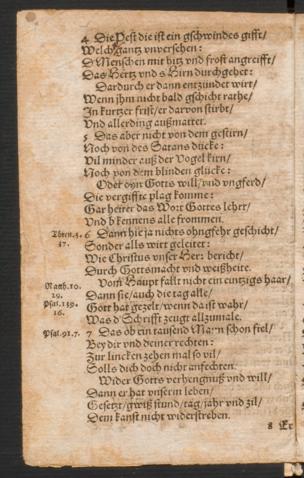 4 Die Pest die ist ein gschwindes gifft/
Welch gantz vnversehen:
D Menschen mit hitz vnd frost angreifft/
Das Hertz vnd s Hirn durchgehet:
Dardurch er dann entzündet wirt/
Wenn jhm nicht bald gschicht rathe/
In kurtzer frist/ er darvon stirbt/
Vnd allerding außmattet.
5 Das aber nicht von dem gestirn/
Noch von des Satans dücke:
Vil minder auß der Vogel kirn/
Noch von dem blinden glücke:
Oder ohn Gotts will/ vnd vngferd/
Die vergifftte plag komme:
Gar heiter das Wort Gottes lehrt/
Vnd bkennens alle frommen.
Thren.3. 6 Dann hie ja nichts ohngfehr geschicht/
37. Sonder alls wirt geleitet:
Wie Christus vnser Herr bericht/
Durch Gottsmacht vnd weißheite.
Vom Haupt fallt nicht ein eintzigs haar/
Matth.10. Dann sie/ auch die tag alle/
29.
Psal.139. Gott hat gezelt/ wenn da ist wahr/
16. Was d Schrifft zeugt allzumale.
Psal.91.7. 7 Das ob ein tausend Mann schon fiel/
Bey dir vnd deiner rechten:
Zur lincken zehen mal so vil/
Solls dich doch nicht anfechten.
Wider Gotts verhengnuß vnd will/
Dann er hat vnserm leben/
Gesetzt/ gwiß stund/ tag/ jahr vnd zil/
Dem kanst nicht widerstreben.
8 Er